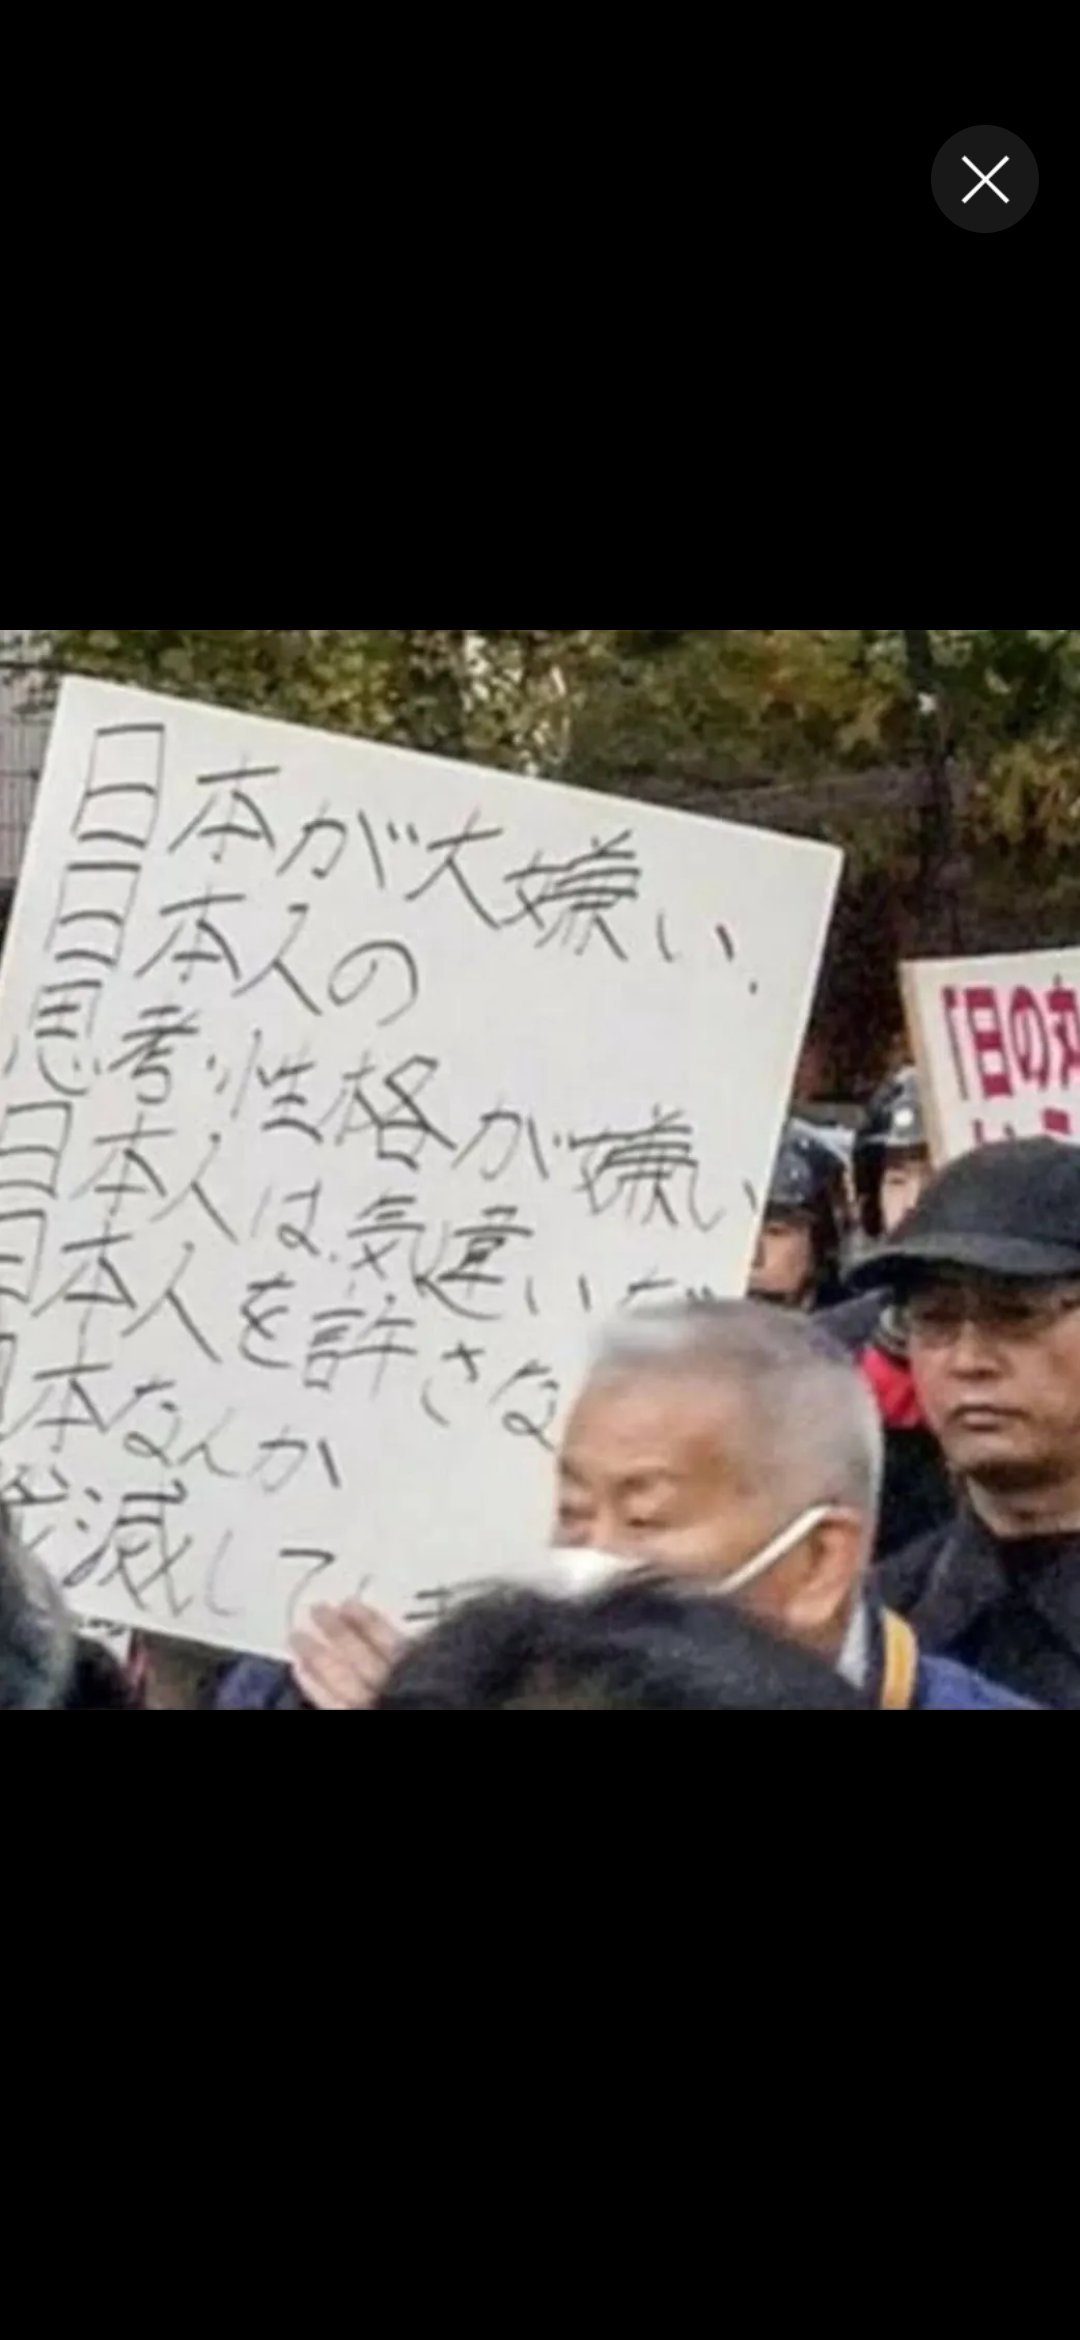 日本が大嫌い.
日本人の
思考・性格が嫌い、
日本人は気違いだ
日本人を許さな
本なんか
滅して
「日の丸